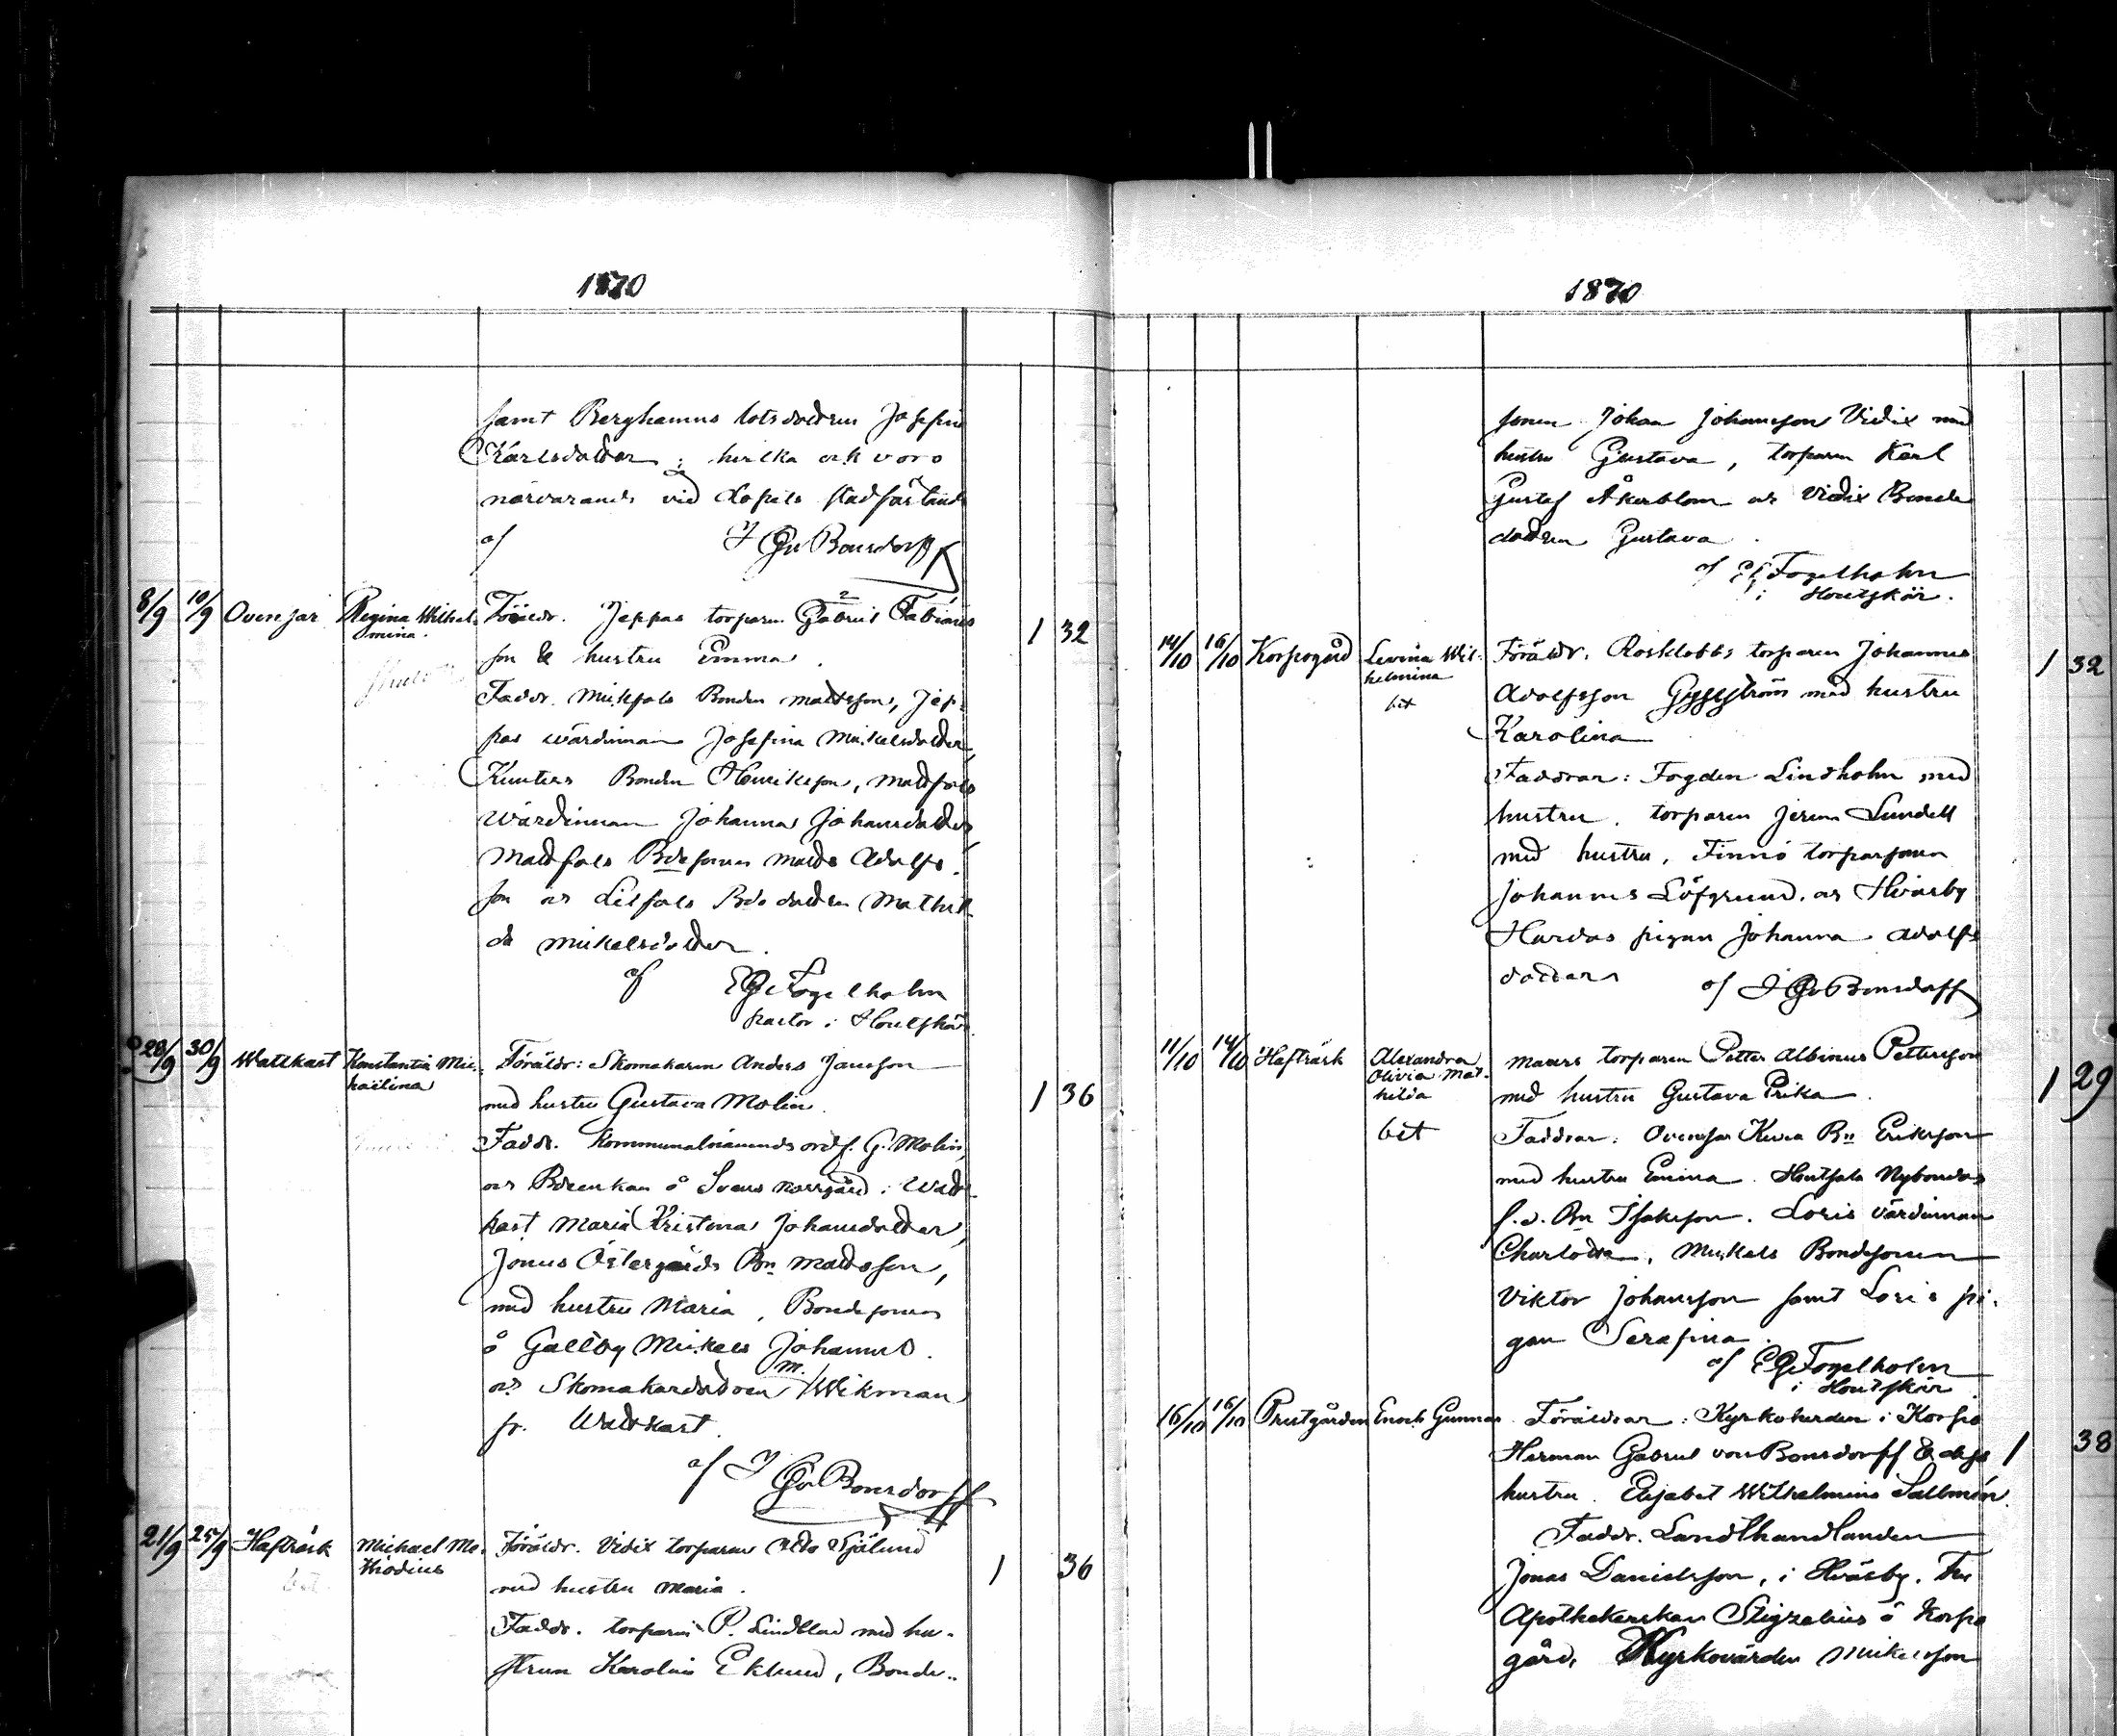 1870
samt Berghamns lotsdottren Josefina
Karlsdotter; hvilka ock voro
närvarande vid dopets stadfästande
af I Gv Bonsdorff
8/9 10/9 Ovensjar Regina Wilhel- Föräldr. Jeppas torparen Gabriel Fabians 1 32
mina.
son & hustru Emma.
Faddr. Mickfols Bonden Mattsson, Jep-
pas wärdinnan Josefina Mikelsdotter,
Knuters Bonden Henriksson, Mattfols
Wärdinnan Johanna Johansdotter,
Mattfols Bdesonen Matts Adolfs-
son och Lillfols Bde dottren Mathil-
da Mikelsdotter.
af EG Fogelholm
pastor i Houtskär
28/9 30/9 Wattkast Konstantia Mi- Föräldr: Skomakaren Anders Jansson
kailina
med hustru Gustava Molin. 1 36
Faddr. Kommunalnämnds ordf. G. Molin,
och Bdeenkan å Svens norrgård i Watt-
kast Maria Kristina Johansdotter,
Jonus Östergårds Bn Mattsson,
med hustru Maria, Bondesonen
å Gallby Mickels Johannes
och Skomakardottren M. Wikman
fr. Wattkast.
af I Gv Bonsdorff
21/9 25/9 Hafträsk Michael Me- Föräldr. Vidix torparen Sjölund 1 36
thodius
bet.
med hustru Maria.
Faddr. torparen P. Lindblad med hu-
strun Karolina Eklund, Bonde-
1870
sonen Johan Johansson Vidix med
hustru Gustava, torparen Karl
Gustaf Åkerblom och Vidix Bonde
dottren Gustava.
af EG Fogelholm
i Houtskär.
14/10 16/10 Korpogård Levina Wil- Föräldr. Rosklobbs torparen Johannes 1 32
helmina
bet
Adolfsson Gyllström med hustru
Karolina
Faddrar: Fogden Lindholm med
hustru, torparen Jerem Lundell
med hustru, Finnö torparsonen
Johannes Löfgrund och Hväsby
Hardas pigan Johanna Adolfs
dotter
af I Gv Bonsdorff
11/10 14/10 Hafträsk Alexandra Maars torparen Petter Albinus Pettersson 1 29
Olivia Mat-
hilda
bet
med hustru Gustava Erika.
Faddrar: Ovensjar Bn Eriksson
med hustru Emma. Houtsala Nybondas
f.d. Bn Isaksson. Loris värdinnan
Charlotta, Mickels Bondesonen
Viktor Johansson samt Loris pi-
gan Serafina.
af EG Fogelholm
i Houtskär
16/10 16/10 Prestgården Enoch Gunnar Föräldrar: Kyrkoherden i Korpo
Herman Gabriel von Bonsdorff & dess 1 38
hustru Elisabet Wilhelmina Sallmén.
Faddr. Landthandlanden
Jonas Danielsson, i Hväsby. Fru
Apothekerskan Stigzelius å Korpo
gård, Kyrkovärden Mikelsson